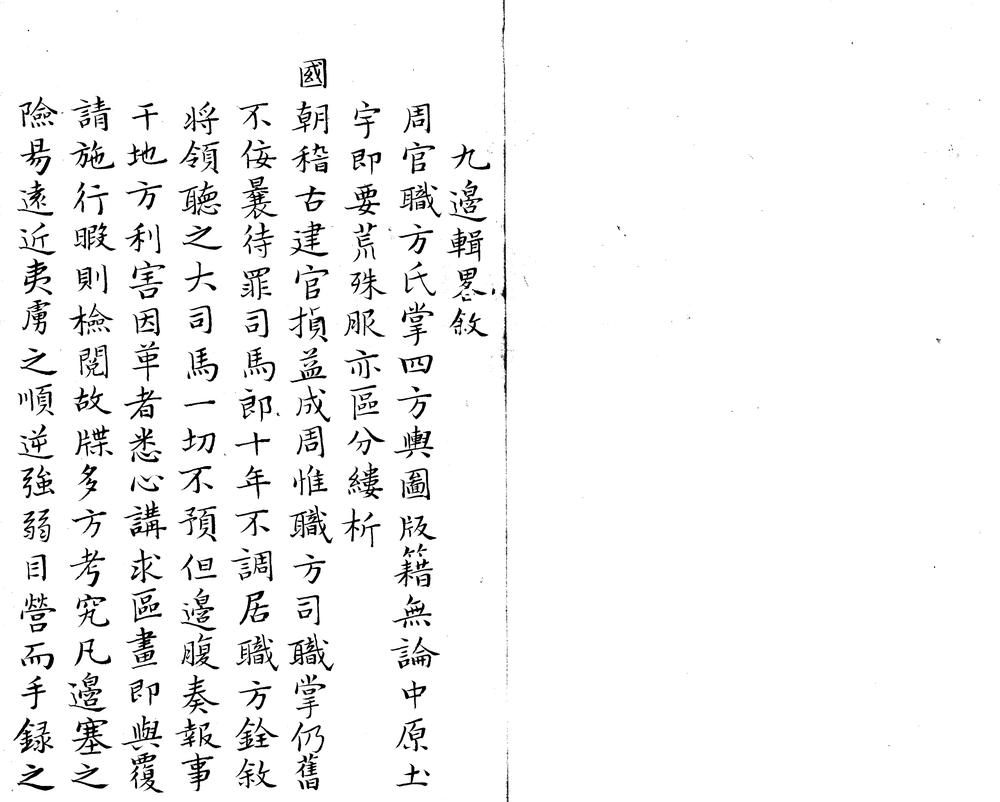 九邊輯畧敘
周官職方氏掌四方輿圖版籍無論中原土
宇即要荒殊服亦區分縷析
國朝稽古建官損益成周惟職方司職掌仍舊
不佞曩待罪司馬郎十年不調居職方銓敘
將領聽之大司馬一切不預但邊腹奏報事
干地方利害因革者悉心講求區畫即與覆
請施行暇則檢閱故牒多方考究凡邊塞之
險易遠近夷虜之順逆強弱目營而手録之